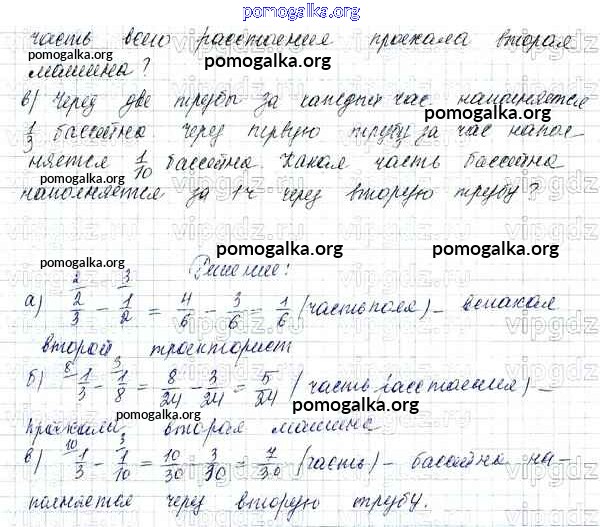 pomogalka.org
часть всего расстояния проехала вторая
машина?
в) Через две трубы за каждый час наполняется
1/3 бассейна. Через первую трубу за час напол-
няется 1/10 бассейна. Какая часть бассейна
наполняется за 1 ч через вторую трубу?
pomogalka.org
pomogalka.org
pomogalka.org
pomogalka.org
pomogalka.org
pomogalka.org
Решение:
а) 2/3 - 1/2 = 4/6 - 3/6 = 1/6 (часть поля) – вспахал
второй тракторист
б) 1/3 - 1/8 = 8/24 - 3/24 = 5/24 (часть расстояния) –
проехала вторая машина
в) 1/3 - 1/10 = 10/30 - 3/30 = 7/30 (часть) – бассейна на-
полняется через вторую трубу.
pomogalka.org
pomogalka.org
pomogalka.org
pomogalka.org
pomogalka.org